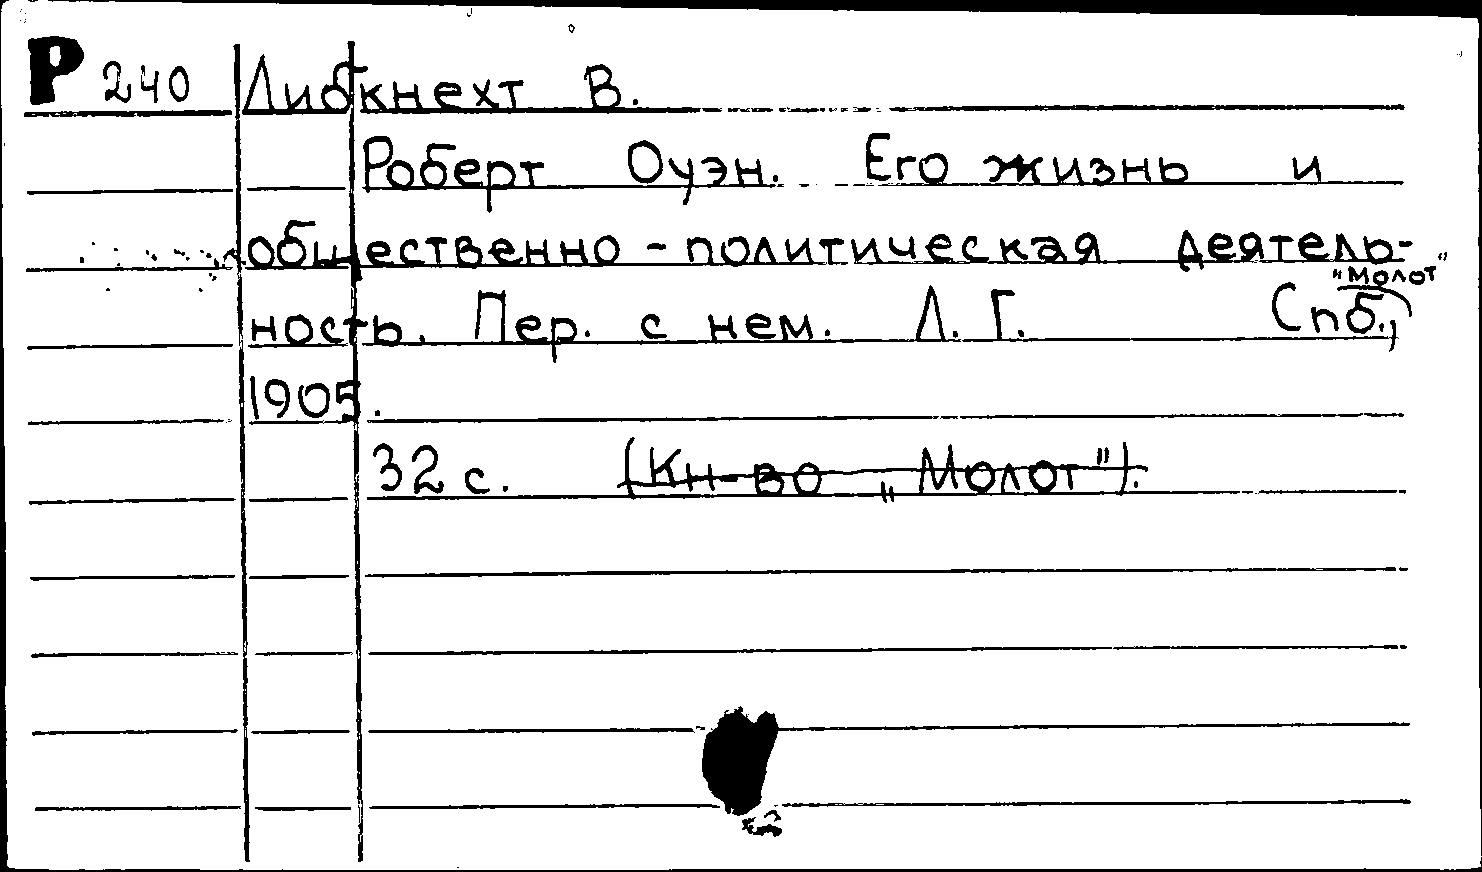 Р 240 Либкнехт В.
Роберт Оуэн. Его жизнь и
общественно-политическая деятель-
"Молот"
ность. Пер. с нем. Л. Г. Спб.,
1905.
32 с. (Кн-во „Молот").